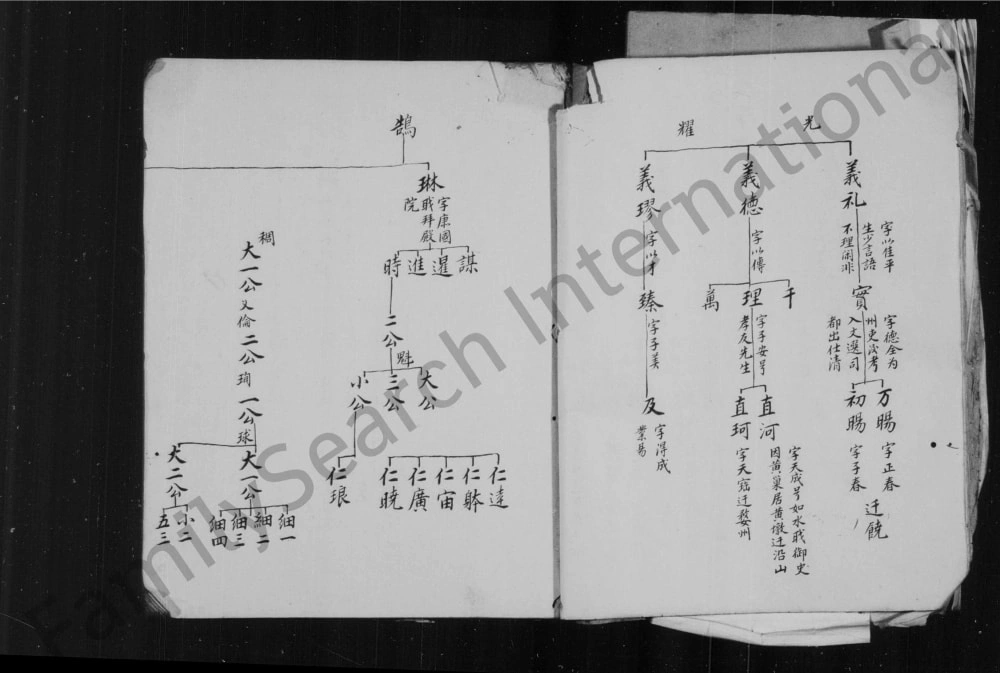 光
耀
義礼
字以佳平
生少言語
不理闹非
實
字德全为
州吏
考
入文選司
都出仕清
万暘
字正春
迁饒
初暘
字子春
義德
字以傳
千
理
字子安号
孝友先生
萬
直河
字天成号如水戝御史
因黄巢居黄墩迁沿山
直珂
字天
迁婺州
義璆
字以才
臻
字子美
及
字得成
業易
鵠
琳
字康國
戝拜殿
院
謀
暹
進
時
二公
魁
大公
三公
小公
仁逵
仁躰
仁宙
仁廣
仁晓
仁琅
稠
大一公又倫二公珣一公球
大一公
大二公
細一
細二
細三
細四
小二
五三
FamilySearch International